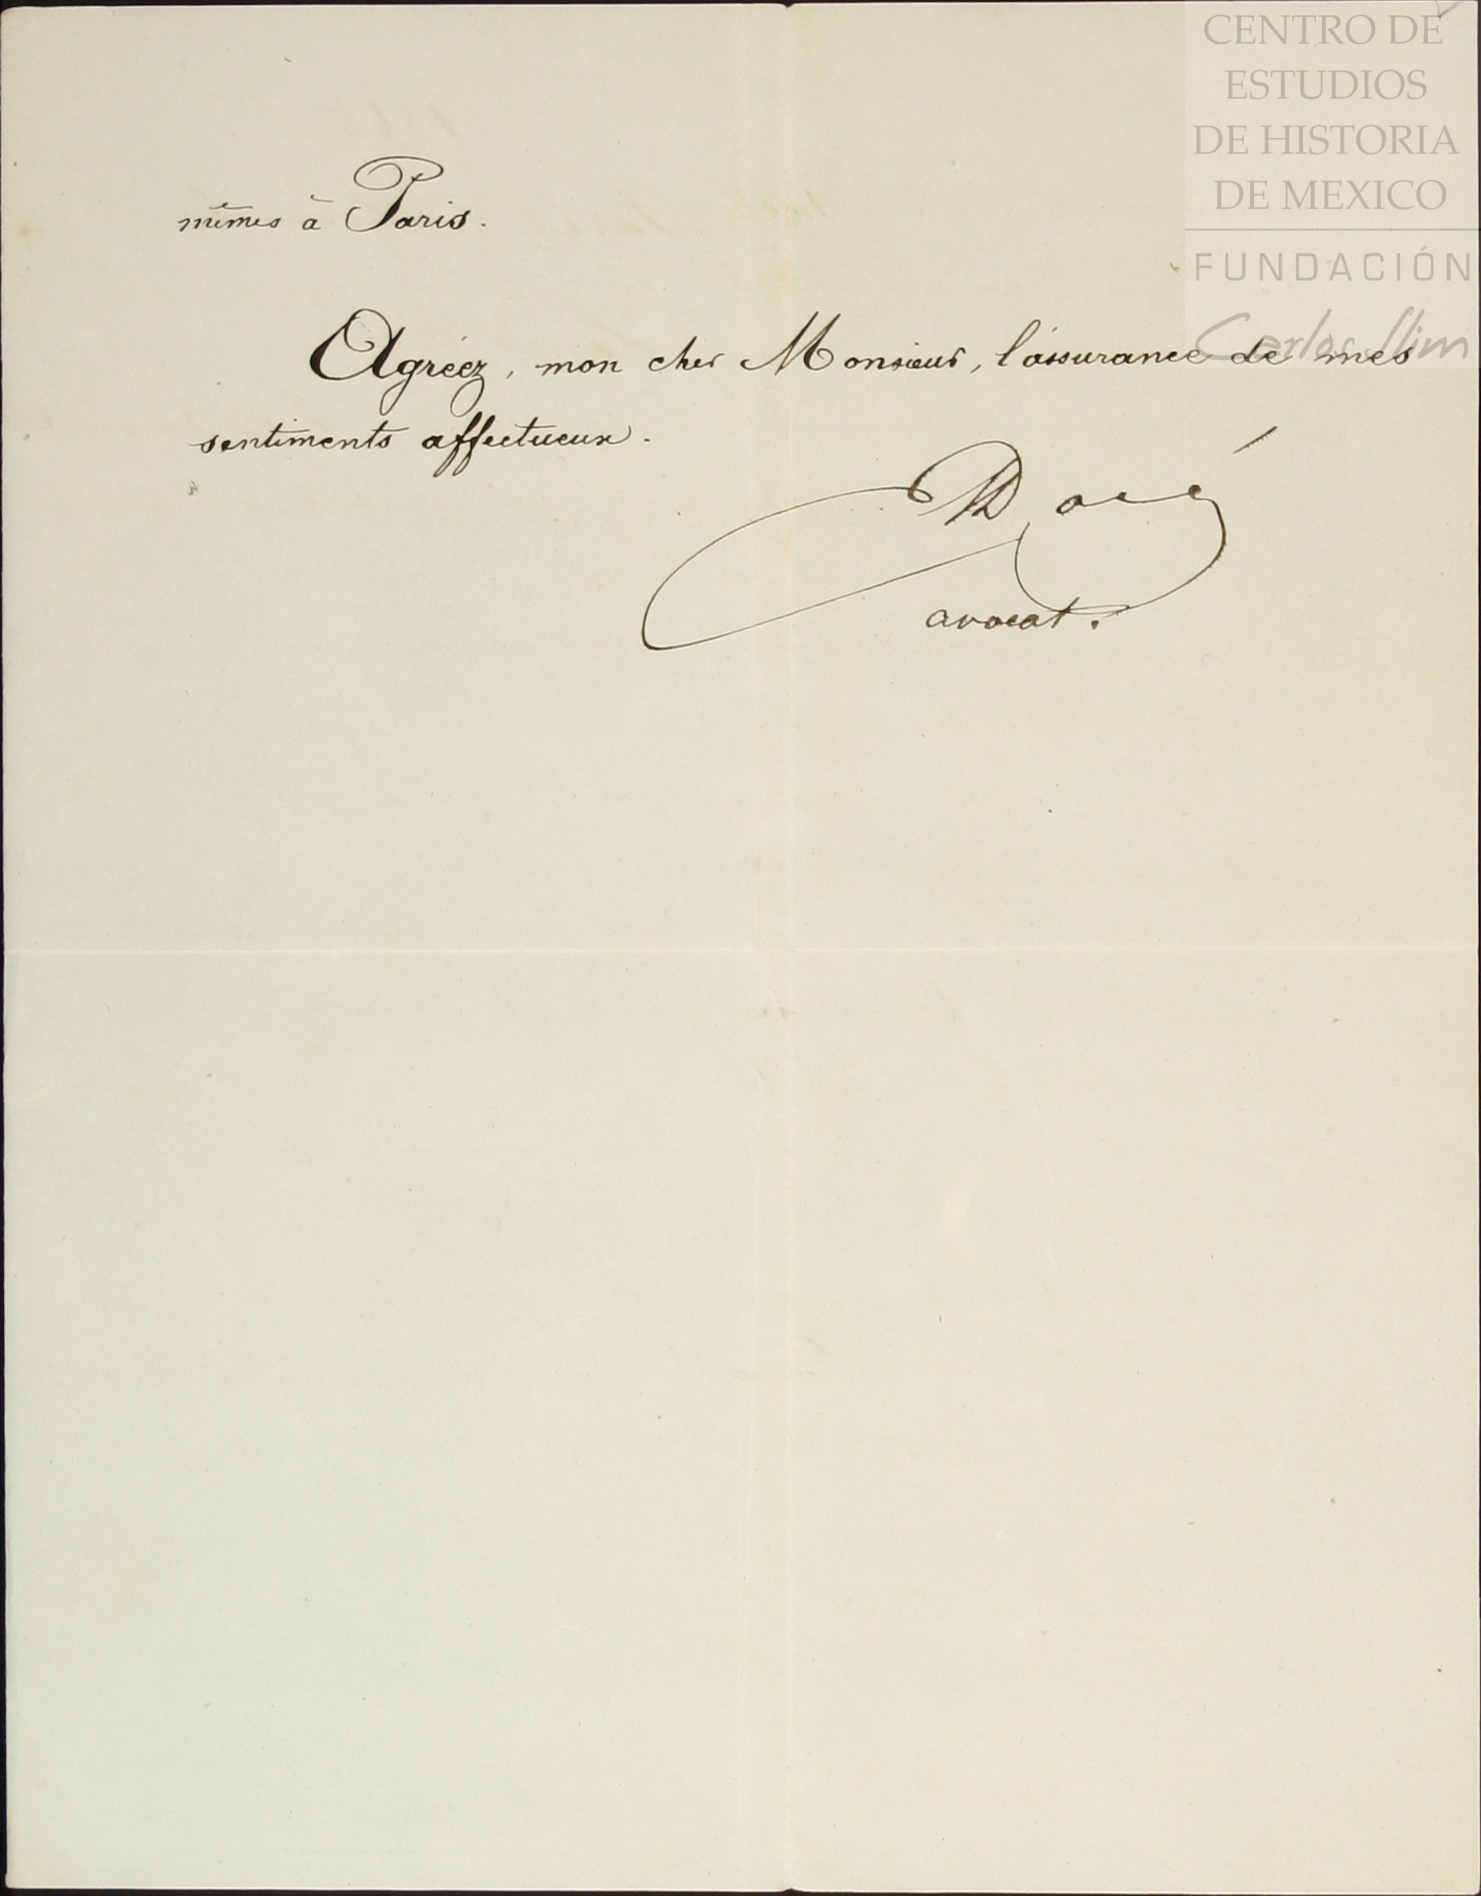 CENTRO DE
ESTUDIOS
DE HISTORIA
DE MEXICO
FUNDACIÓN
Carlos Slim
mêmes à Paris.
Agréez, mon cher Monsieur, l'assurance de mes
sentiments affectueux.
avocat.